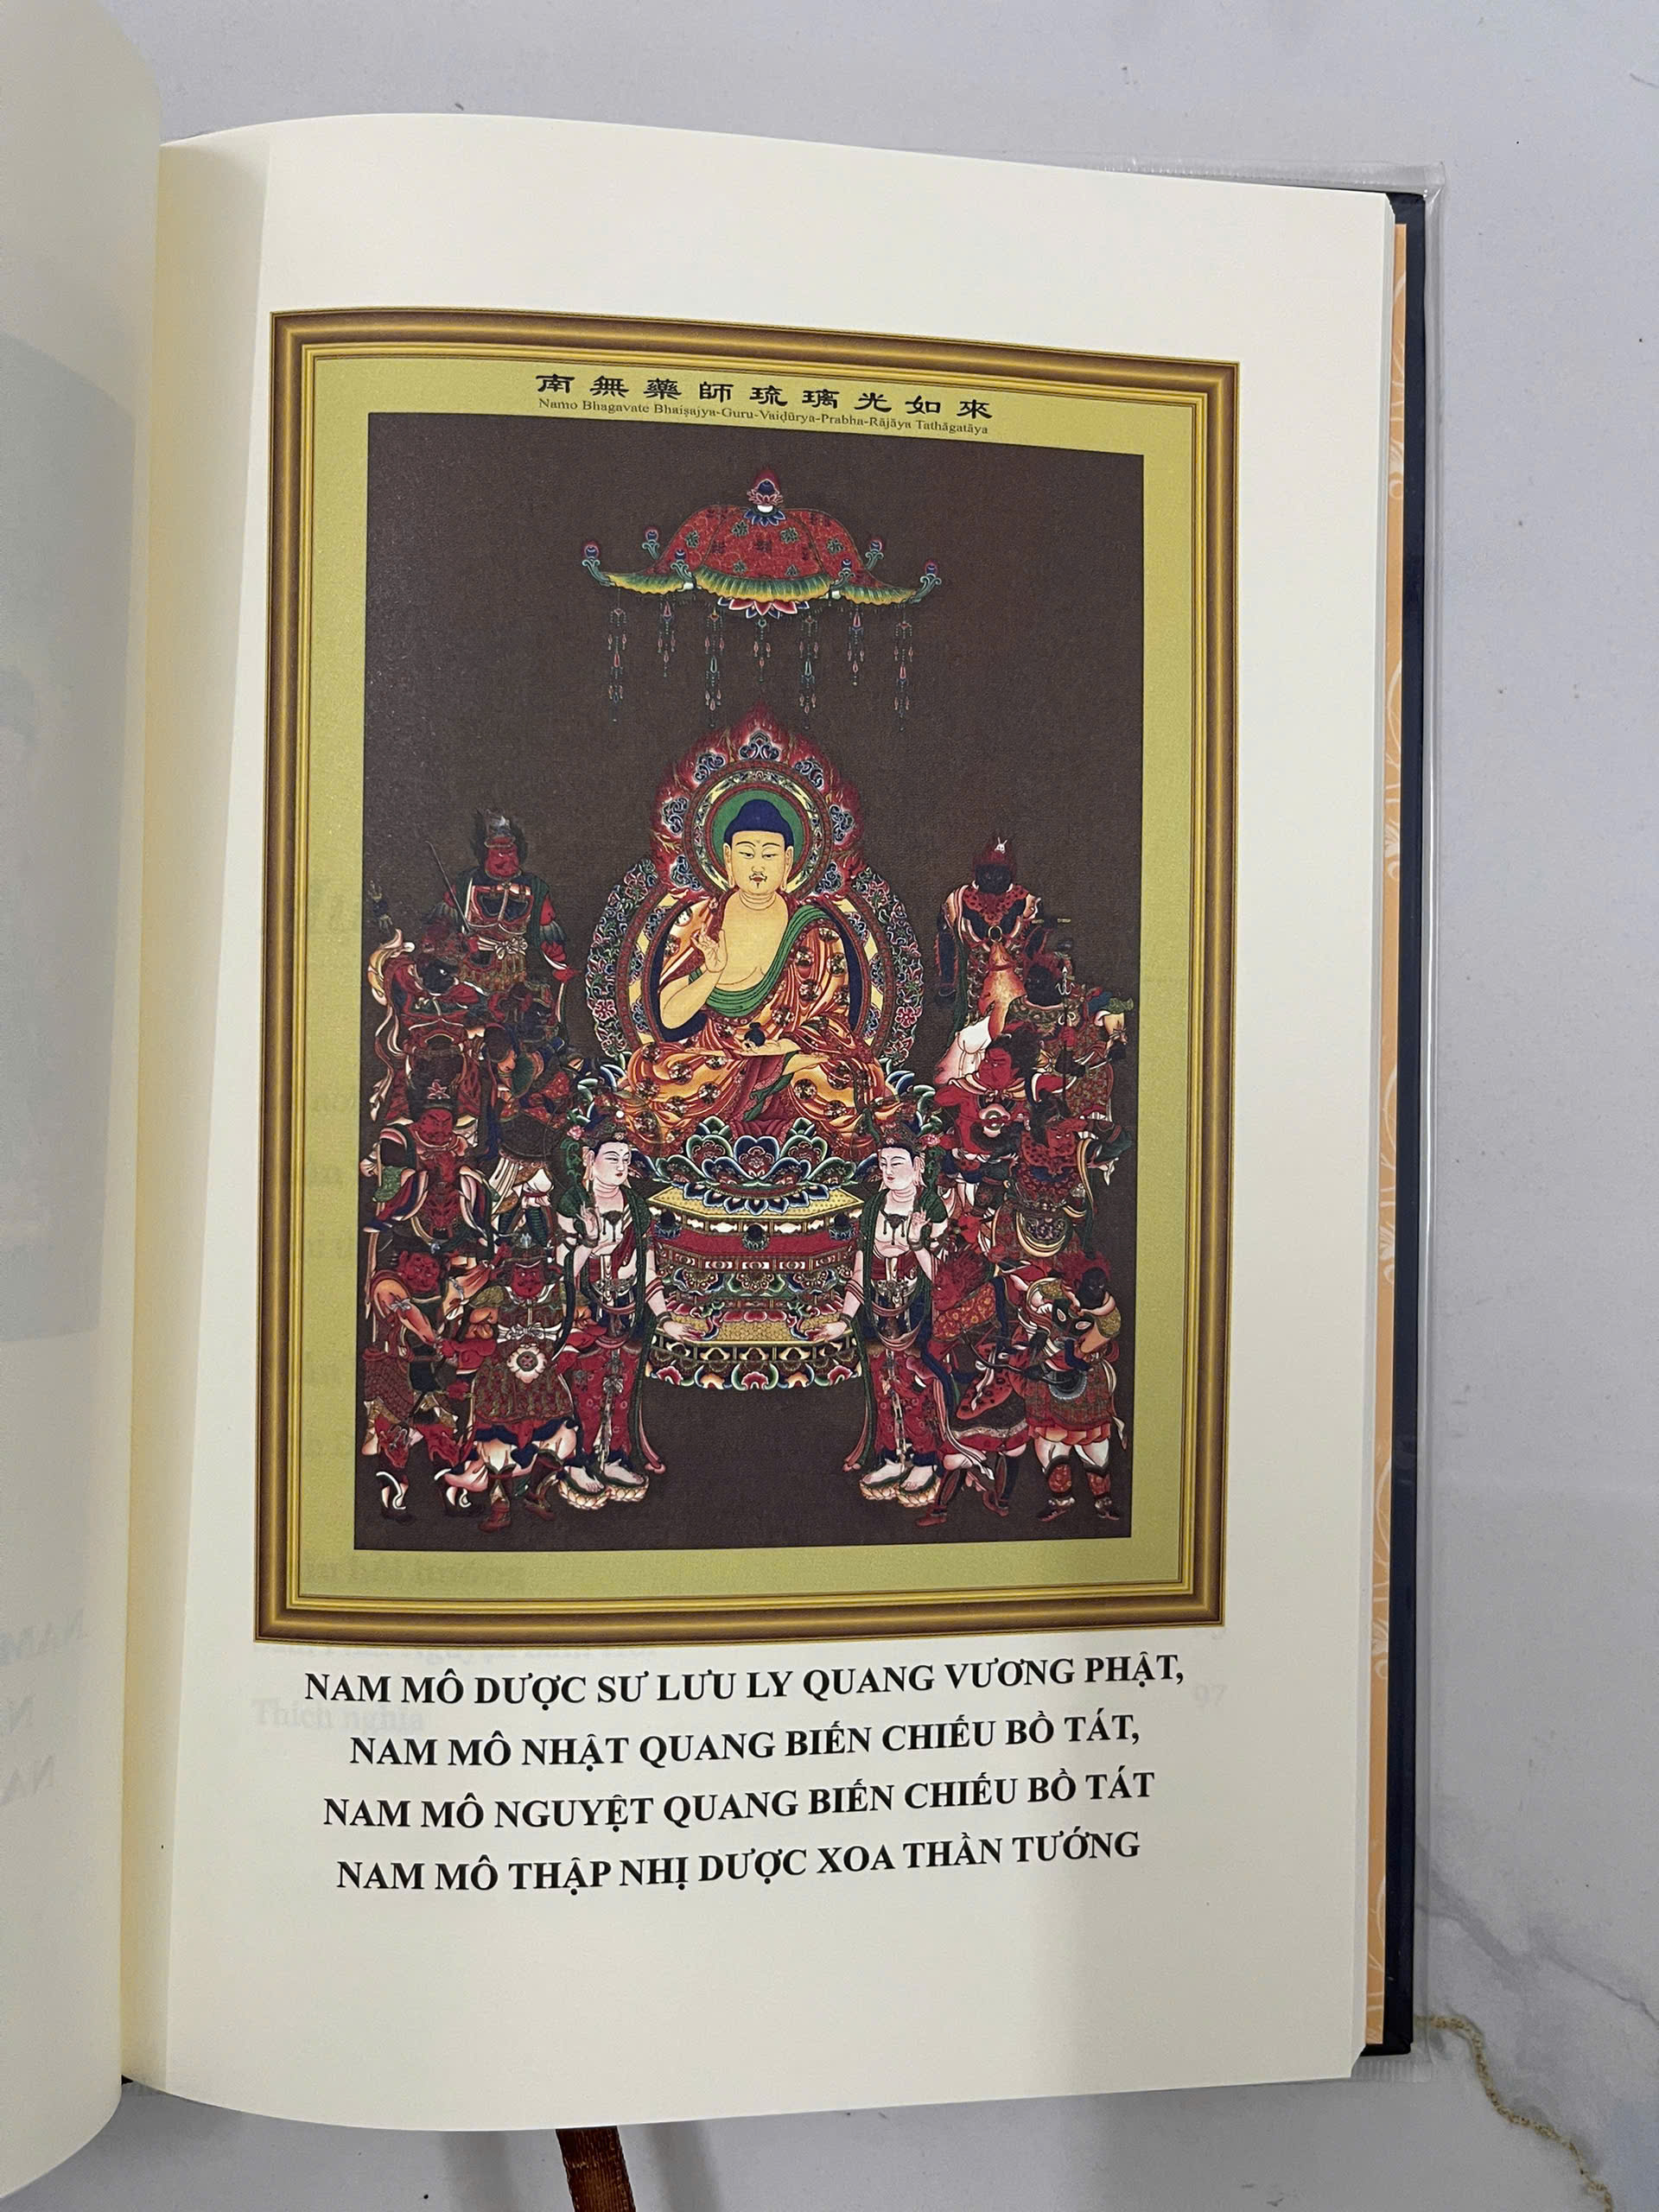 南無藥師琉璃光如來
Namo Bhagavate Bhaiṣajya-Guru-Vaiḍūrya-Prabha-Rājāya Tathāgatāya
NAM MÔ DƯỢC SƯ LƯU LY QUANG VƯƠNG PHẬT,
NAM MÔ NHẬT QUANG BIẾN CHIẾU BỒ TÁT,
NAM MÔ NGUYỆT QUANG BIẾN CHIẾU BỒ TÁT
NAM MÔ THẬP NHỊ DƯỢC XOA THẦN TƯỚNG
Thích nghĩa 97